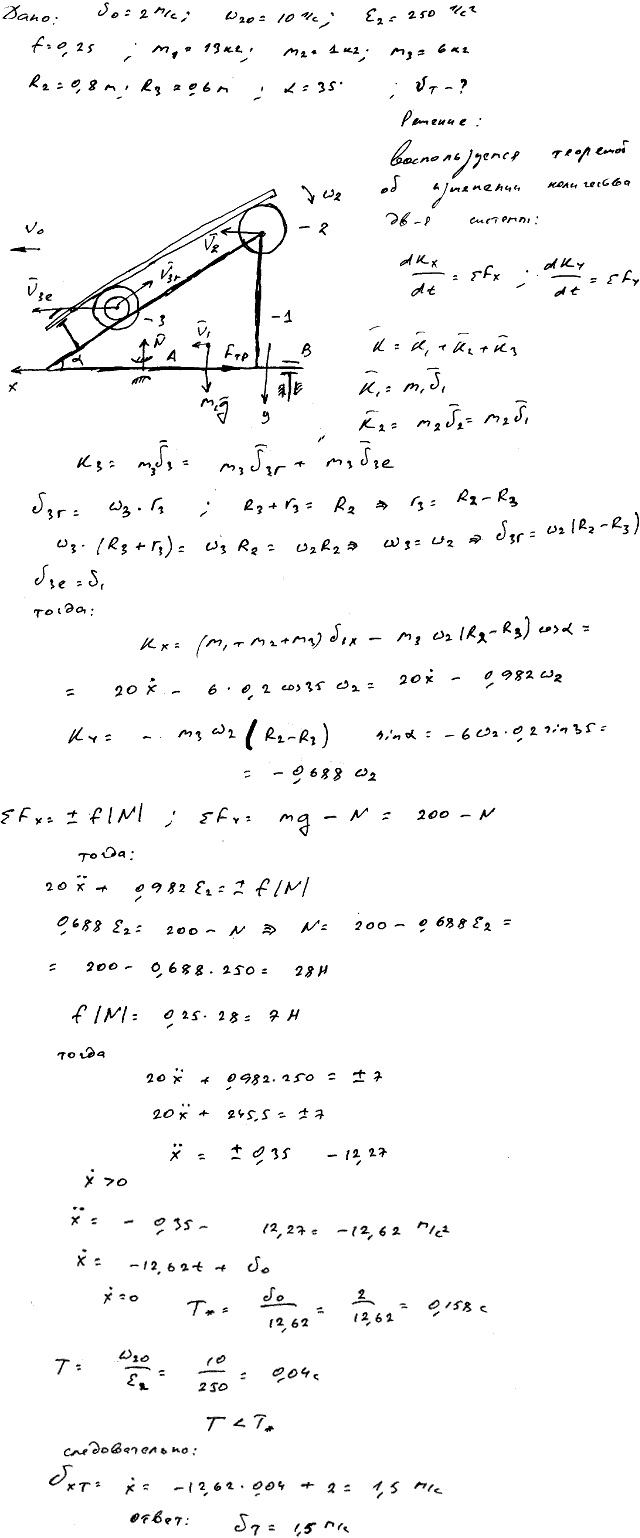 Дано: υ₀ = 2 м/с; ω₂₀ = 10 1/с; ε₂ = 250 1/с²
f = 0,25 ; m₁ = 13 кг; m₂ = 1 кг; m₃ = 6 кг
R₂ = 0,8 м; R₃ = 0,6 м ; α = 35° ; υ_T - ?
Решение:
Воспользуемся теоремой
об изменении количества
дв-я системы:
dK_x/dt = ΣF_x ; dK_y/dt = ΣF_y
K̄ = K̄₁ + K̄₂ + K̄₃
K̄₁ = m₁ῡ₁
K̄₂ = m₂ῡ₂ = m₂ῡ₁
ω₂
V₀
V̄₂
2
V̄₃r
V̄₃e
3
1
α
N̄
A
V̄₁
Fтр
B
x
m₁ḡ
y
K₃ = m₃ῡ₃ = m₃ῡ₃r + m₃ῡ₃e
υ₃r = ω₃ · r₃ ; R₃ + r₃ = R₂ ⇒ r₃ = R₂ - R₃
ω₃ · (R₃ + r₃) = ω₃R₂ = ω₂R₂ ⇒ ω₃ = ω₂ ⇒ υ₃r = ω₂(R₂ - R₃)
υ₃e = υ₁
тогда:
K_x = (m₁ + m₂ + m₃) υ₁x - m₃ ω₂ (R₂ - R₃) cosα =
= 20ẋ - 6 · 0,2 cos35 ω₂ = 20ẋ - 0,982 ω₂
K_y = - m₃ ω₂ (R₂ - R₃) sinα = - 6ω₂ · 0,2 sin35 =
= - 0,688 ω₂
ΣF_x = ± f|N| ; ΣF_y = mg - N = 200 - N
тогда:
20ẍ + 0,982 ε₂ = ± f|N|
0,688 ε₂ = 200 - N ⇒ N = 200 - 0,688 ε₂ =
= 200 - 0,688 · 250 = 28 Н
f|N| = 0,25 · 28 = 7 Н
тогда
20ẍ + 0,982 · 250 = ± 7
20ẍ + 245,5 = ± 7
ẍ = ± 0,35 - 12,27
ẋ > 0
ẍ = - 0,35 - 12,27 = - 12,62 м/с²
ẋ = - 12,62t + υ₀
ẋ = 0 T* = υ₀/12,62 = 2/12,62 = 0,158 с
T = ω₂₀/ε₂ = 10/250 = 0,04 с
T < T*
следовательно:
υ_xT = ẋ = - 12,62 · 0,04 + 2 = 1,5 м/с
ответ: υ_T = 1,5 м/с